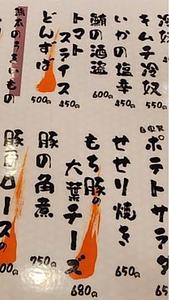 冷奴
キムチ冷奴
いかの塩辛
鮪の酒盗
600円
トマト
スライス
450
どんずば
500円
熊本のうまいもの
自家製
ポテトサラダ
650
せせり焼き
650
もち豚の
大葉チーズ
680円
豚の角煮
750円
豚肩ロースの
00円